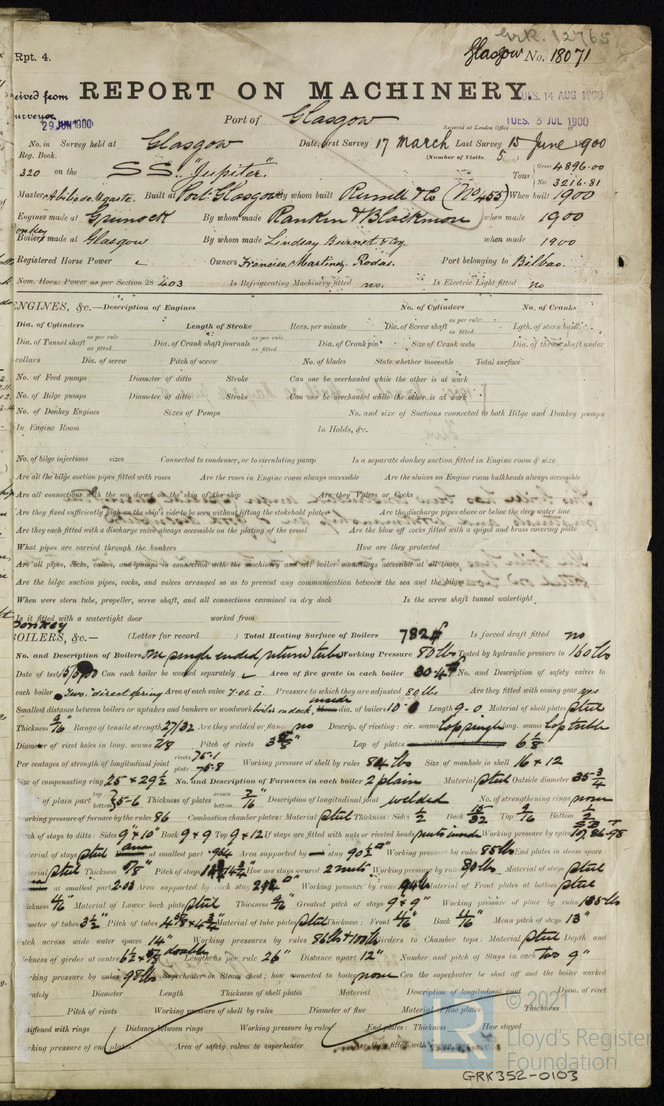 Grk. 12765
Rpt. 4.
Glasgow No. 18071
REPORT ON MACHINERY
TUES. 14 AUG 1900
29 JUN 1900
Port of Glasgow
Received at London Office TUES. 3 JUL 1900
No. in Survey held at Glasgow Date, first Survey 17 March Last Survey 15 June 1900
Reg. Book.
(Number of Visits 5
320 on the SS. "Jupiter" Tons Gross 4896.00 Net 3216.81
Master Built at Port Glasgow By whom built Russell & Co (No 455) When built 1900
Engines made at Greenock By whom made Rankin & Blackmore when made 1900
Donkey Boilers made at Glasgow By whom made Lindsay Burnet & Co when made 1900
Registered Horse Power Owners Francisco Martinez Rodas. Port belonging to Bilbao.
Nom. Horse Power as per Section 28 403 Is Refrigerating Machinery fitted no. Is Electric Light fitted no
ENGINES, &c.—Description of Engines No. of Cylinders No. of Cranks
Dia. of Cylinders Length of Stroke Revs. per minute Dia. of Screw shaft as per rule as fitted Lgth. of stern bush
Dia. of Tunnel shaft as per rule as fitted Dia. of Crank shaft journals as per rule as fitted Dia. of Crank pin Size of Crank webs Dia. of thrust shaft under
collars Dia. of screw Pitch of screw No. of blades State whether moveable Total surface
No. of Feed pumps Diameter of ditto Stroke Can one be overhauled while the other is at work
No. of Bilge pumps Diameter of ditto Stroke Can one be overhauled while the other is at work
No. of Donkey Engines Sizes of Pumps No. and size of Suctions connected to both Bilge and Donkey pumps
In Engine Room In Holds, &c.
No. of bilge injections sizes Connected to condenser, or to circulating pump Is a separate donkey suction fitted in Engine room & size
Are all the bilge suction pipes fitted with roses Are the roses in Engine room always accessible Are the sluices on Engine room bulkheads always accessible
Are all connections with the sea direct on the skin of the ship Are they Valves or Cocks
Are they fixed sufficiently high on the ship's side to be seen without lifting the stokehold plates Are the discharge pipes above or below the deep water line
Are they each fitted with a discharge valve always accessible on the plating of the vessel Are the blow off cocks fitted with a spigot and brass covering plate
What pipes are carried through the bunkers How are they protected
Are all pipes, cocks, valves, and pumps in connection with the machinery and all boiler mountings accessible at all times
Are the bilge suction pipes, cocks, and valves arranged so as to prevent any communication between the sea and the bilges
When were stern tube, propeller, screw shaft, and all connections examined in dry dock Is the screw shaft tunnel watertight
Is it fitted with a watertight door worked from
Donkey
BOILERS, &c.— (Letter for record ) Total Heating Surface of Boilers 782 Is forced draft fitted no
No. and Description of Boilers One single ended return tube Working Pressure 80 lbs Tested by hydraulic pressure to 160 lbs
Date of test Can each boiler be worked separately Area of fire grate in each boiler 30.4 No. and Description of safety valves to
each boiler Two direct spring Area of each valve 7.06 Pressure to which they are adjusted 80 lbs Are they fitted with easing gear yes
Smallest distance between boilers or uptakes and bunkers or woodwork boiler on deck, inside dia. of boilers 10.0 Length 9-0 Material of shell plates steel
Thickness 9/16 Range of tensile strength 27/32 Are they welded or flanged no Descrip. of riveting: cir. seams lap single long. seams lap treble
Diameter of rivet holes in long. seams 7/8 Pitch of rivets Lap of plates 6 1/8
Per centages of strength of longitudinal joint rivets 75.1 plate 75.8 Working pressure of shell by rules 84 lbs Size of manhole in shell 16 x 12
Size of compensating ring 25 x 29 1/2 No. and Description of Furnaces in each boiler 2 plain Material steel Outside diameter 35 3/4
of plain part top bottom 5-6 Thickness of plates crown bottom 7/16 Description of longitudinal joint welded No. of strengthening rings none
Working pressure of furnace by the rules 86 Combustion chamber plates: Material steel Thickness: Sides 1/2 Back 15/32 Top 9/16 Bottom
Pitch of stays to ditto: Sides 9 x 10" Back 9 x 9 Top 9 x 12 If stays are fitted with nuts or riveted heads nuts inside Working pressure by rules
Material of stays steel at smallest part .964 Area supported by stay 90 1/2 Working pressure by rules 85 lbs End plates in steam space:
Material steel Thickness Pitch of stays How are stays secured 2 nuts Working pressure by rules 80 lbs. Material of stays steel
at smallest part 2.03 Area supported by each stay Working pressure by rules 94 lbs Material of Front plates at bottom steel
Thickness Material of Lower back plate steel Thickness 9/16 Greatest pitch of stays 9" x 9" Working pressure of plate by rules
Diameter of tubes 3 1/2" Pitch of tubes Material of tube plates steel Thickness: Front 11/16" Back 11/16" Mean pitch of stays 13"
Pitch across wide water spaces 14" Working pressures by rules 86 lbs & 100 lbs Girders to Chamber tops: Material steel Depth and
thickness of girder at centre double Length as per rule 26" Distance apart 12" Number and pitch of Stays in each Two 9"
Working pressure by rules 98 lbs Superheater or Steam chest; how connected to boiler none Can the superheater be shut off and the boiler worked
separately Diameter Length Thickness of shell plates Material Description of longitudinal joint Diam. of rivet
Pitch of rivets Working pressure of shell by rules Diameter of flue Material of flue plates Thickness
stiffened with rings Distance between rings Working pressure by rules End plates: Thickness How stayed
Working pressure of end plates Area of safety valves to superheater
© 2021
Lloyd's Register
Foundation
GRK352-0103